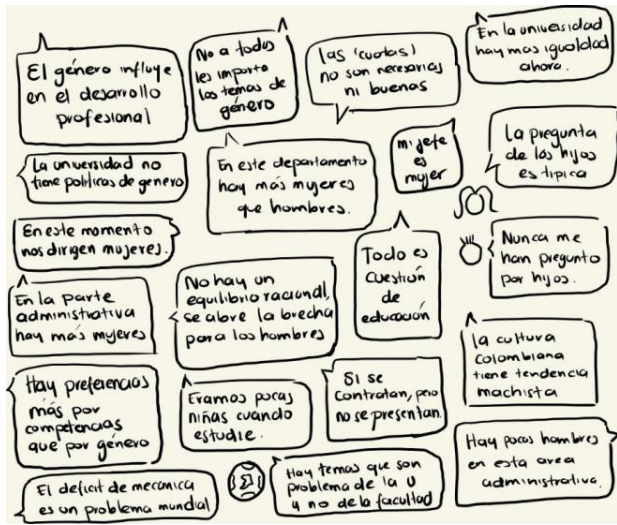 El género influye
en el desarrollo
profesional
No a todos
les importa
los temas de
género
las 'cuotas'
no son necesarias
ni buenas
En la universidad
hay mas igualdad
ahora.
La universidad no
tiene políticas de genero
En este departamento
hay más mujeres
que hombres.
mi jefe
es
mujer
La pregunta
de los hijos
es tipica
En este momento
nos dirigen mujeres.
Todo es
cuestión
de
educación
Nunca me
han pregunto
por hijos.
En la parte
administrativa
hay más mujeres
No hay un
equilibrio racional,
se abre la brecha
para los hombres
la cultura
colombiana
tiene tendencia
machista
Hay preferencias
más por
competencias
que por género
Eramos pocas
niñas cuando
estudie.
Si se
contratan, pero
no se presentan.
Hay pocos hombres
en esta area
administrativa.
El deficit de mecánica
es un problema mundial
Hay temas que son
problema de la U
y no de la facultad